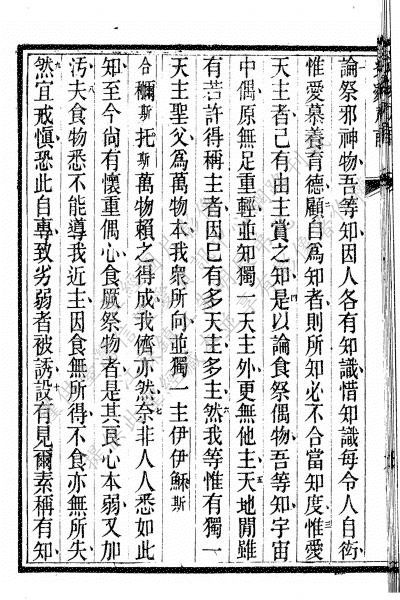 論祭邪神物吾等知因人各有知識惜知識每令人自衒
惟愛慕養育德顧自為知者則所知必不合當知度惟愛
天主者己有由主賞之知是以論食祭偶物吾等知宇宙
中偶原無足重輕並知獨一天主外更無他主天地間雖
有苦許得稱主者因已有多天主多主然我等惟有獨一
天主聖父為萬物本我眾所向並獨一主伊伊穌斯
合欄斯托斯萬物賴之得成我儕亦然奈非人人悉如此
知至今尚有懷重偶心食厥祭物者是其良心本弱又加
汚夫食物悉不能導我近主因食無所得不食亦無所失
然宜戒慎恐此自專致劣弱者被誘設有見爾素稱有知